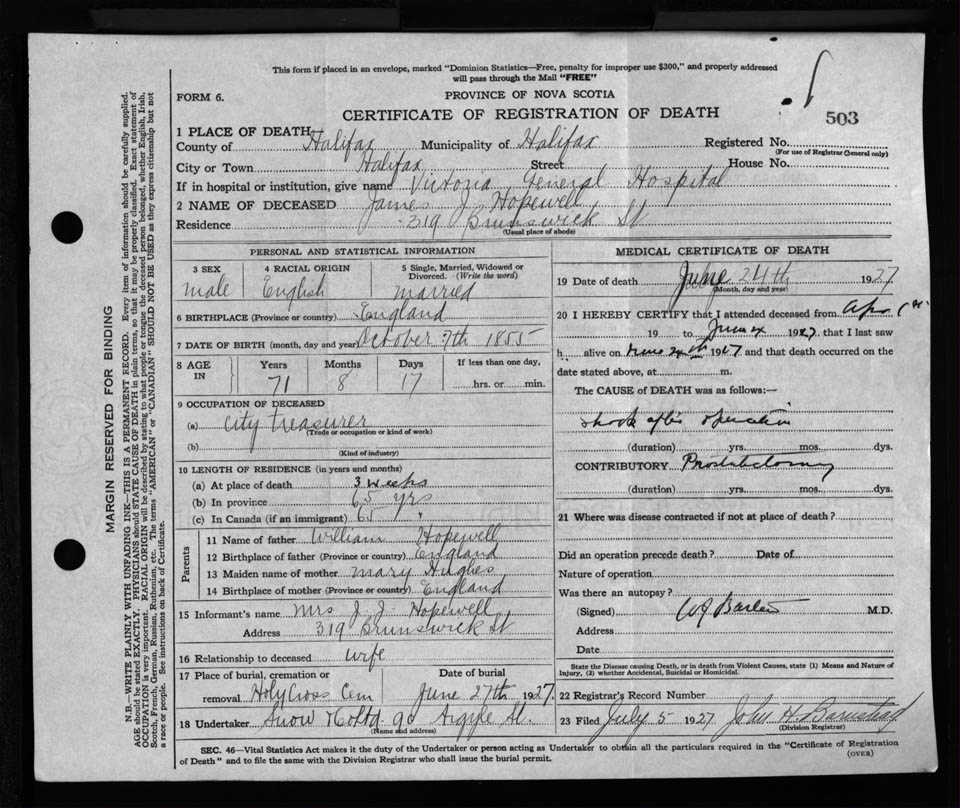 This form if placed in an envelope, marked "Dominion Statistics—Free, penalty for improper use $300," and properly addressed
will pass through the Mail "FREE"
FORM 6.
PROVINCE OF NOVA SCOTIA
CERTIFICATE OF REGISTRATION OF DEATH
503
1 PLACE OF DEATH
County of Halifax Municipality of Halifax Registered No.
(For use of Registrar General only)
City or Town Halifax Street House No.
If in hospital or institution, give name Victoria General Hospital
2 NAME OF DECEASED James J. Hopewell
Residence 319 Brunswick St
(Usual place of abode)
PERSONAL AND STATISTICAL INFORMATION
3 SEX 4 RACIAL ORIGIN 5 Single, Married, Widowed or
Divorced. (Write the word)
male English married
6 BIRTHPLACE (Province or country) England
7 DATE OF BIRTH (month, day and year) October 7th 1855
8 AGE IN Years Months Days If less than one day,
71 8 17 hrs. or min.
9 OCCUPATION OF DECEASED
(a) city treasurer
(Trade or occupation or kind of work)
(b)
(Kind of industry)
10 LENGTH OF RESIDENCE (in years and months)
(a) At place of death 3 weeks
(b) In province 65 yrs
(c) In Canada (if an immigrant) 65 "
Parents
11 Name of father William Hopewell
12 Birthplace of father (Province or country) England
13 Maiden name of mother Mary Hughes
14 Birthplace of mother (Province or country) England
15 Informant's name Mrs J. J. Hopewell
Address 319 Brunswick St
16 Relationship to deceased wife
17 Place of burial, cremation or Date of burial
removal Holy Cross Cem June 27th 1927.
18 Undertaker Snow & Co Ltd. 90 Argyle St.
(Name and address)
MEDICAL CERTIFICATE OF DEATH
19 Date of death June 24th 1927
(Month, day and year)
20 I HEREBY CERTIFY that I attended deceased from
19 to June 24 1927, that I last saw
h alive on June 24th 1927 and that death occurred on the
date stated above, at m.
The CAUSE of DEATH was as follows:—
shock after operation
(duration) yrs. mos. dys.
CONTRIBUTORY. Prostatectomy
(duration) yrs. mos. dys.
21 Where was disease contracted if not at place of death?
Did an operation precede death? Date of
Nature of operation
Was there an autopsy?
(Signed) M.D.
Address
Date
State the Disease causing Death, or in death from Violent Causes, state (1) Means and Nature of
Injury, (2) whether Accidental, Suicidal or Homicidal.
22 Registrar's Record Number
23 Filed July 5 1927 John H. Barnstead
(Division Registrar)
SEC. 46—Vital Statistics Act makes it the duty of the Undertaker or person acting as Undertaker to obtain all the particulars required in the "Certificate of Registration
of Death" and to file the same with the Division Registrar who shall issue the burial permit.
(OVER)
MARGIN RESERVED FOR BINDING
N.B.—WRITE PLAINLY WITH UNFADING INK—THIS IS A PERMANENT RECORD. Every item of information should be carefully supplied.
AGE should be stated EXACTLY. PHYSICIANS should STATE CAUSE OF DEATH in plain terms, so that it may be properly classified. Exact statement of
OCCUPATION is very important. RACIAL ORIGIN will be described by stating to what people or tongue the deceased person belonged, whether English, Irish,
Scotch, French, German, Russian, Ruthenian, etc. The terms "AMERICAN" or "CANADIAN" SHOULD NOT BE USED as they express citizenship but not
a race or people. See instructions on back of Certificate.